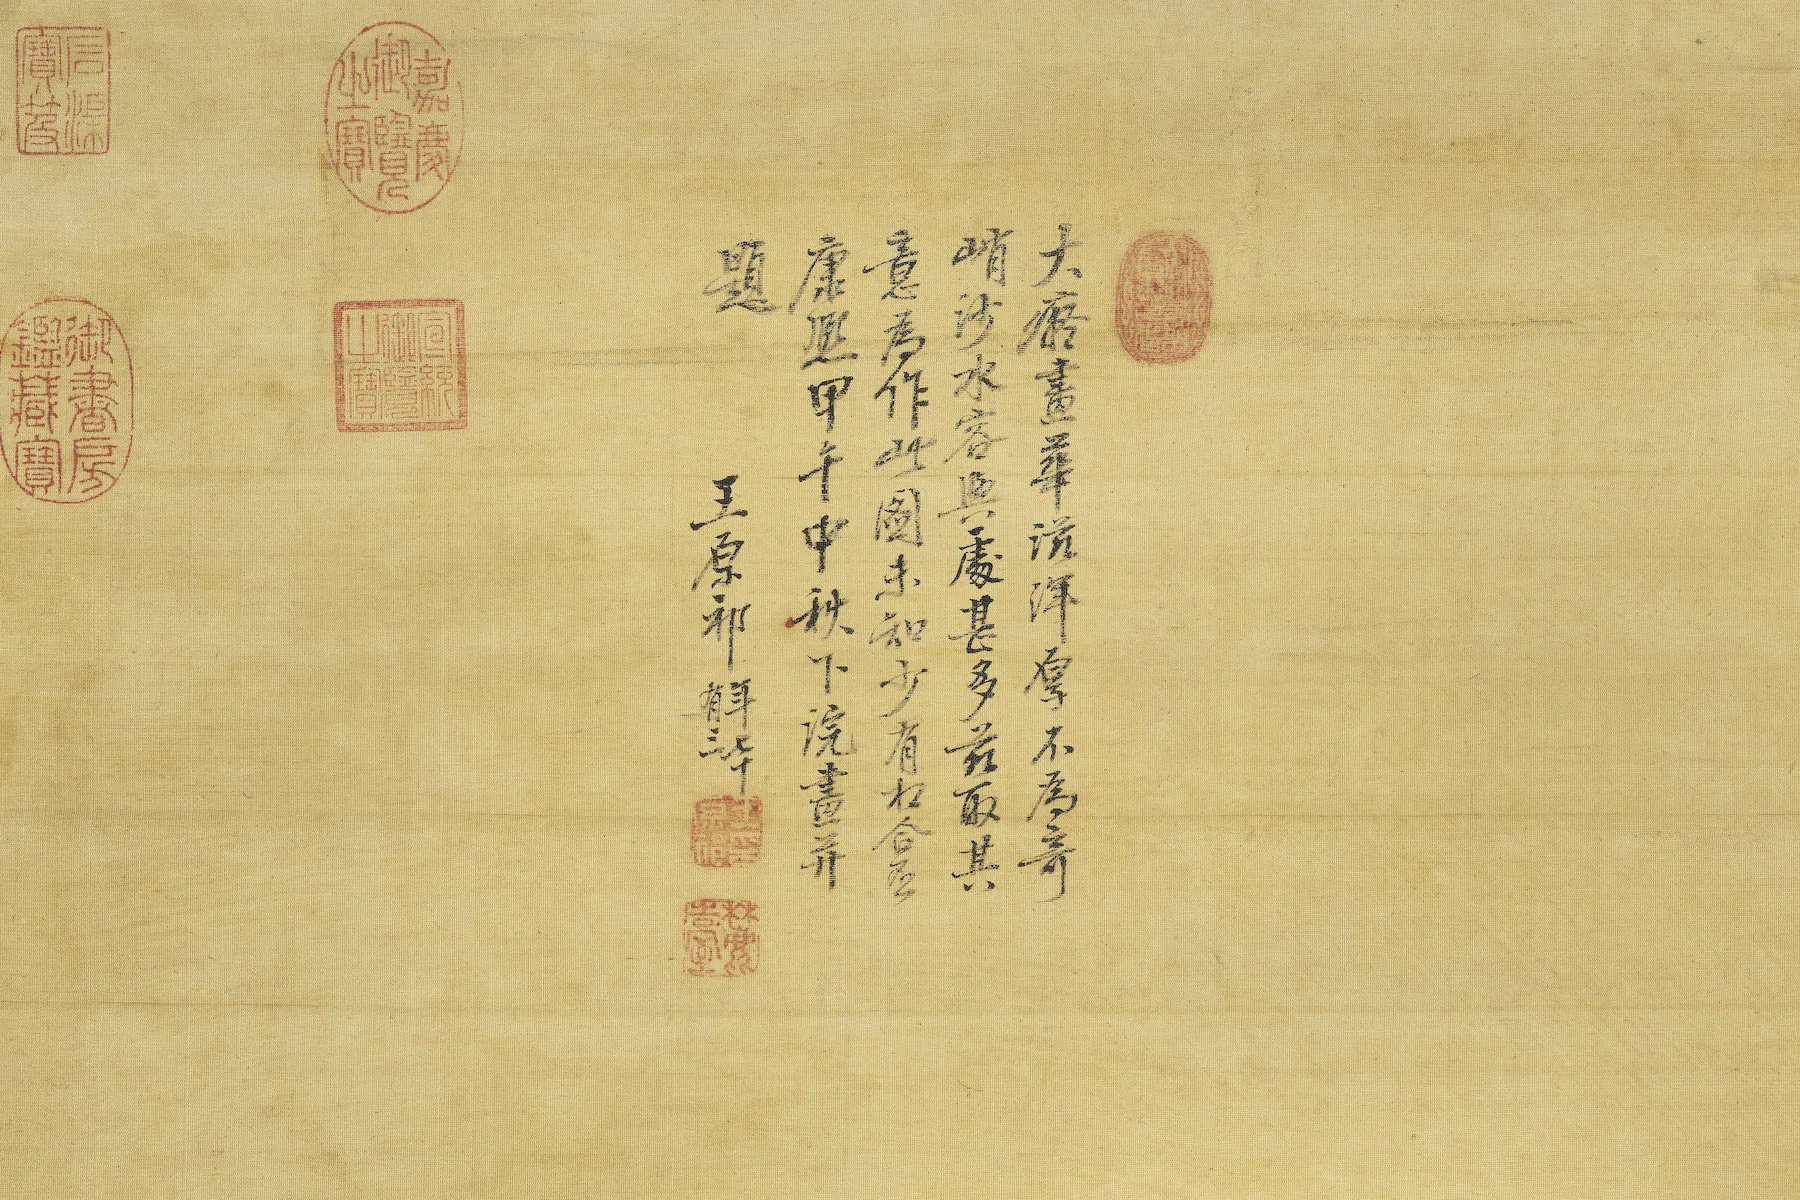 大癡畫華滋渾厚不為奇
峭沙水容與處甚多茲取其
意為作此圖未知少有相合否
康熙甲午中秋下浣畫并
題
王原祁
年七十
有三
麓臺
嘉慶御覽之寶
宣統御覽之寶
石渠寶笈
御書房鑑藏寶